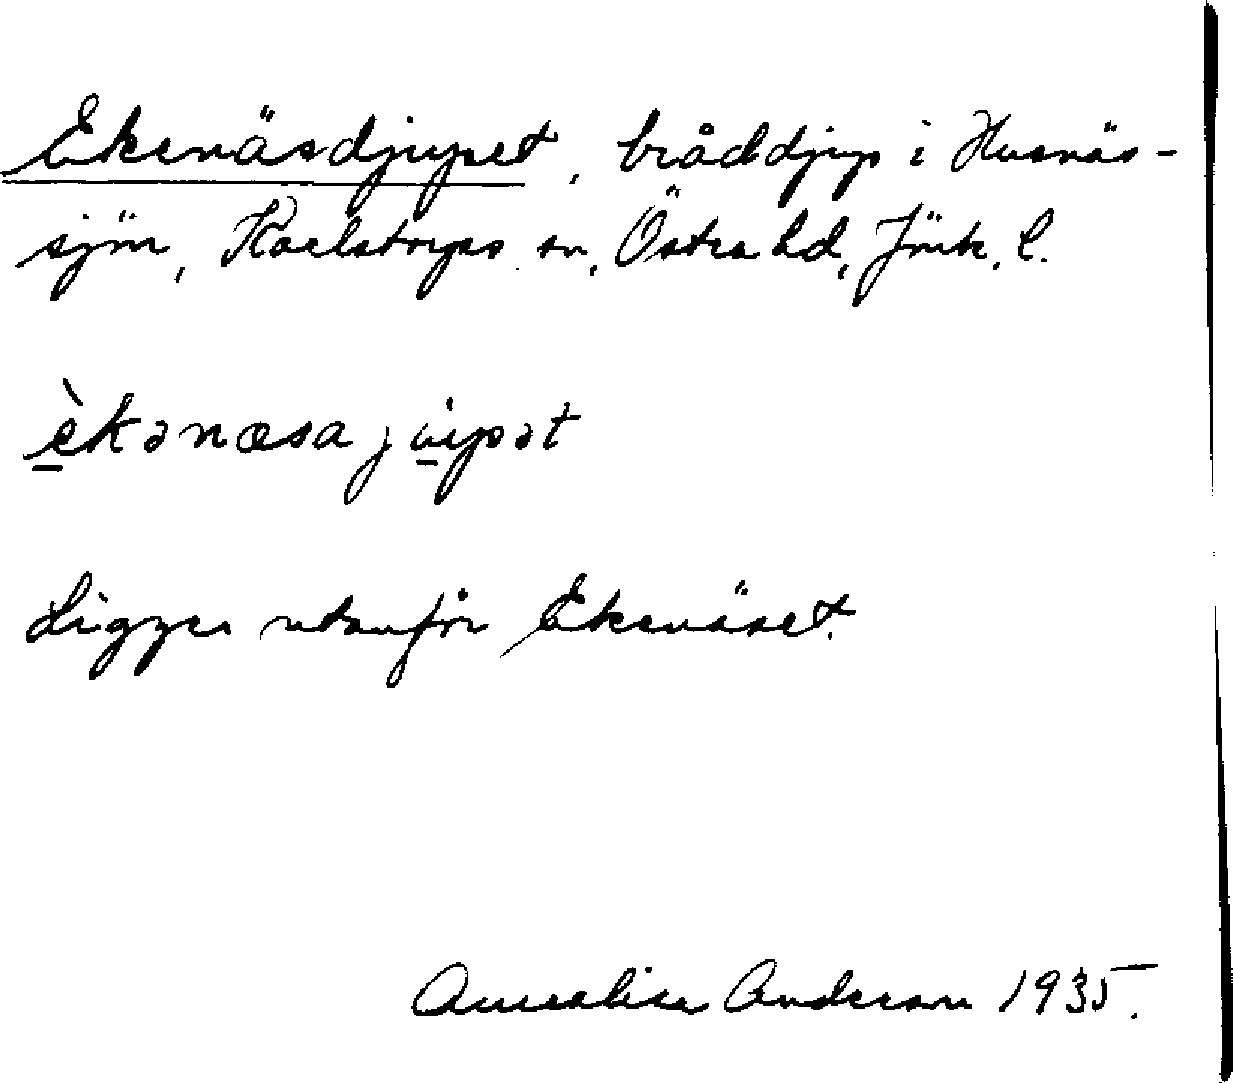 Ekenäsdjupet, bråddjup i Husnäs-
sjön, Karlstorps sn, Östra hd, Jönk. l.
èkənæsajúpət
Ligger utanför Ekenäset.
Annalisa Anderson 1935.